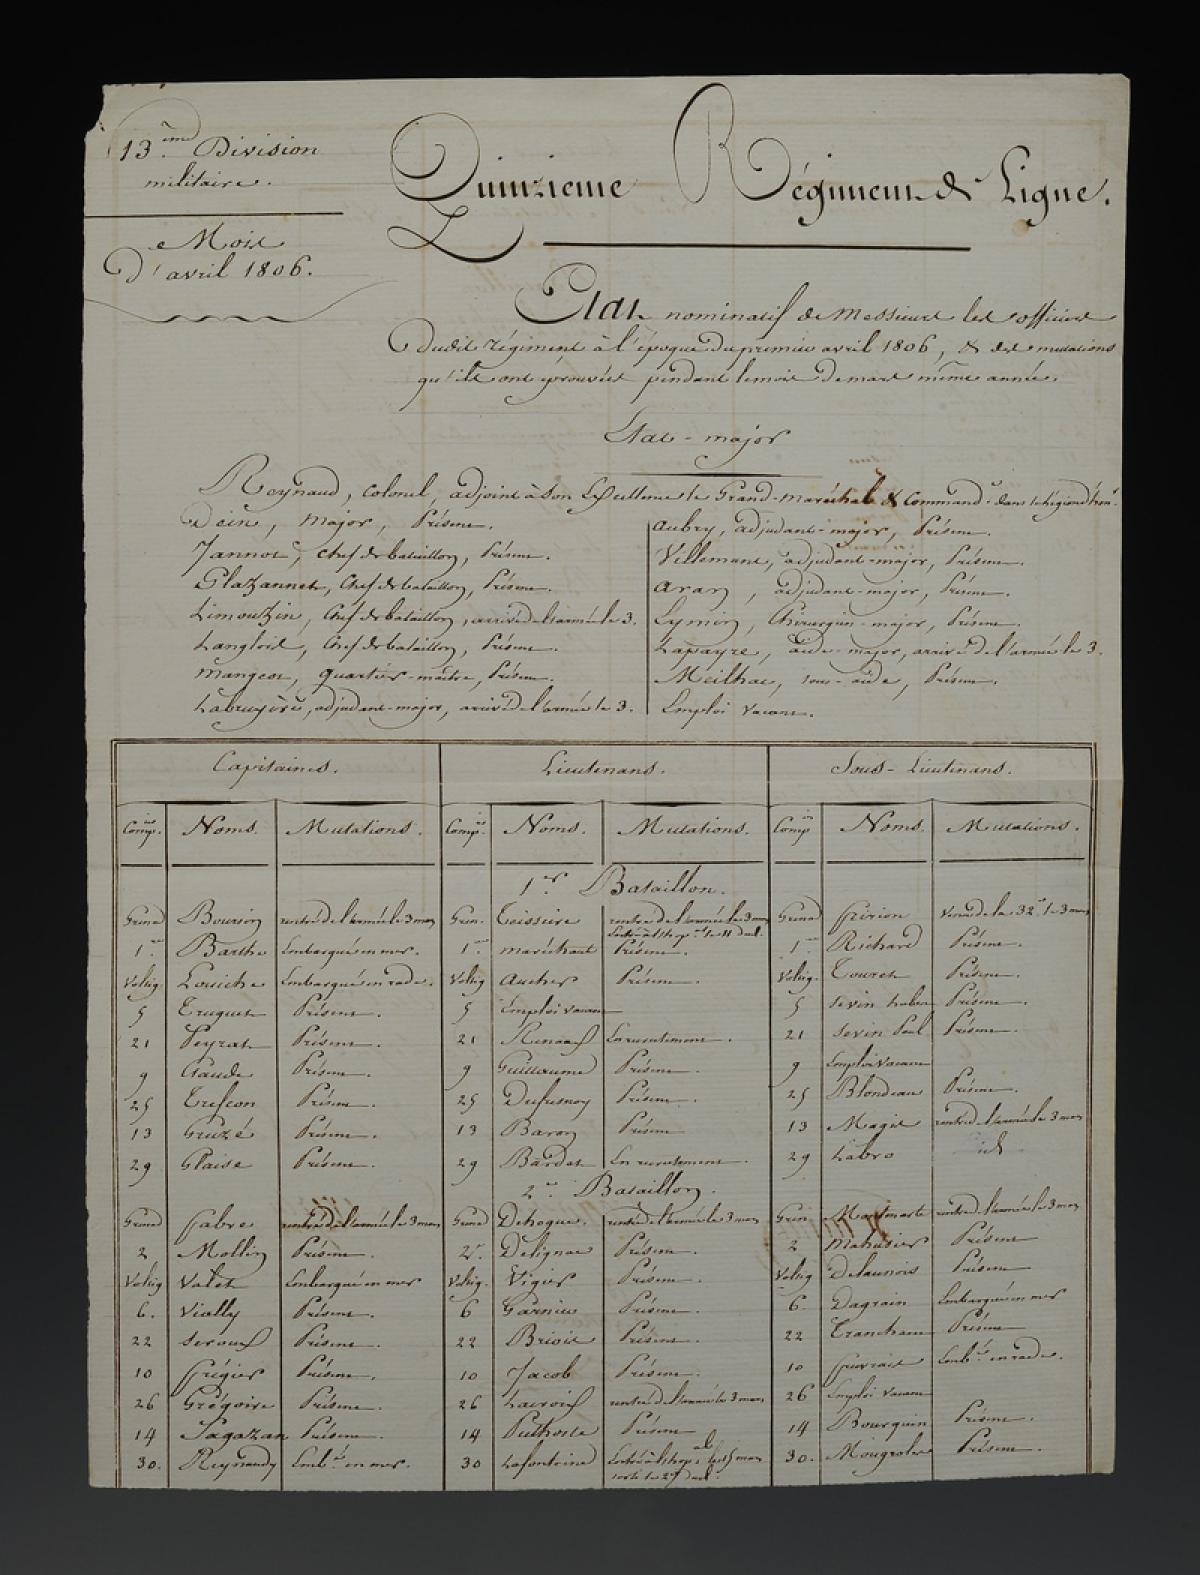 13.ème Division
militaire.
Mois
D'avril 1806.
Quinzieme Régiment de Ligne.
Etat nominatif de Messieurs les officiers
Dudit régiment à l'époque du premier avril 1806, & des mutations
qu'ils ont éprouvées pendant le mois de mars même année.
Etat-major
Reynaud, Colonel, adjoint à son Excellence le Grand-maréchal & Command.t dans la légion d'hon.r
Dein, Major, Présent.
Jannot, Chef de bataillon, Présent.
Glazannet, Chef de bataillon, Présent.
Limouzin, Chef de bataillon, arrivé de l'armée le 3.
Langlois, Chef de bataillon, Présent.
Mangeot, quartier-maître, Présent.
Labruyère, adjudant-major, arrivé de l'armée le 3.
Aubry, adjudant-major, Présent.
Villement, adjudant-major, Présent.
Aran, adjudant-major, Présent.
Eymin, Chirurgien-major, Présent.
Lapayre, aide-major, arrivé de l'armée le 3.
Meilhac, sous-aide, Présent.
Emploi vacant.
Capitaines. Lieutenans. Sous-Lieutenans.
Comp.ies Noms. Mutations. Comp.ies Noms. Mutations. Comp.ies Noms. Mutations.
1.er Bataillon.
Grenad Bourson rentré de l'armée le 3 mars Gren. Teisseire rentré de l'armée le 3 mars Grenad Pirion venu de la 32.e le 3 mars
Entré à l'hop.al le 11 dud.
1.re Barthe Embarqué en mer. 1.re Maréchaut Présent. 1.re Richard Présent.
Voltig. Louiche Embarqué en rade. Voltig Aucher Présent. Voltig. Touret Présent.
5 Truguet Présent. 5 Emploi vacant 5 Sevin Présent.
21 Peyrat Présent. 21 Renouf En recrutement. 21 Sevin Paul Présent.
9 Gaude Présent. 9 Guillaume Présent. 9 Emploi vacant
25 Trescon Présent. 25 Dufresnoy Présent. 25 Blondeau Présent.
13 Gruzé Présent. 13 Baron Présent 13 Magit rentré de l'armée le 3 mars
29 Glaise Présent. 29 Bardet En recrutement. 29 Labro id
2.e Bataillon.
Grenad Fabre rentré de l'armée le 3 mars Grenad Dehogue. rentré de l'armée le 3 mars Gren. Montmarte rentré de l'armée le 3 mars
2 Mollin Présent. 2.e Delignac Présent. 2 Mahusier Présent
Voltig Valet Embarqué en mer Voltig. Vigier Présent. Voltig Delaunois Présent
6. Vially Présent. 6 Garnier Présent. 6. Dagrain Embarqué en mer
22 Seroux Présent. 22 Briois Présent. 22 Tranchant Présent
10 Frégier Présent. 10 Jacob Présent. 10 Emb.é en rade.
26 Grégoire Présent. 26 Lacroix rentré de l'armée le 3 mars 26 Emploi vacant
14 Sagazan Présent. 14 Puthoste Présent 14 Bourguin Présent.
30. Reynaud Emb.é en mer. 30 Lafontaine Entré à l'hop.al le 15 mars 30. Mougrolle Présent.
sorti le 27 dud.t